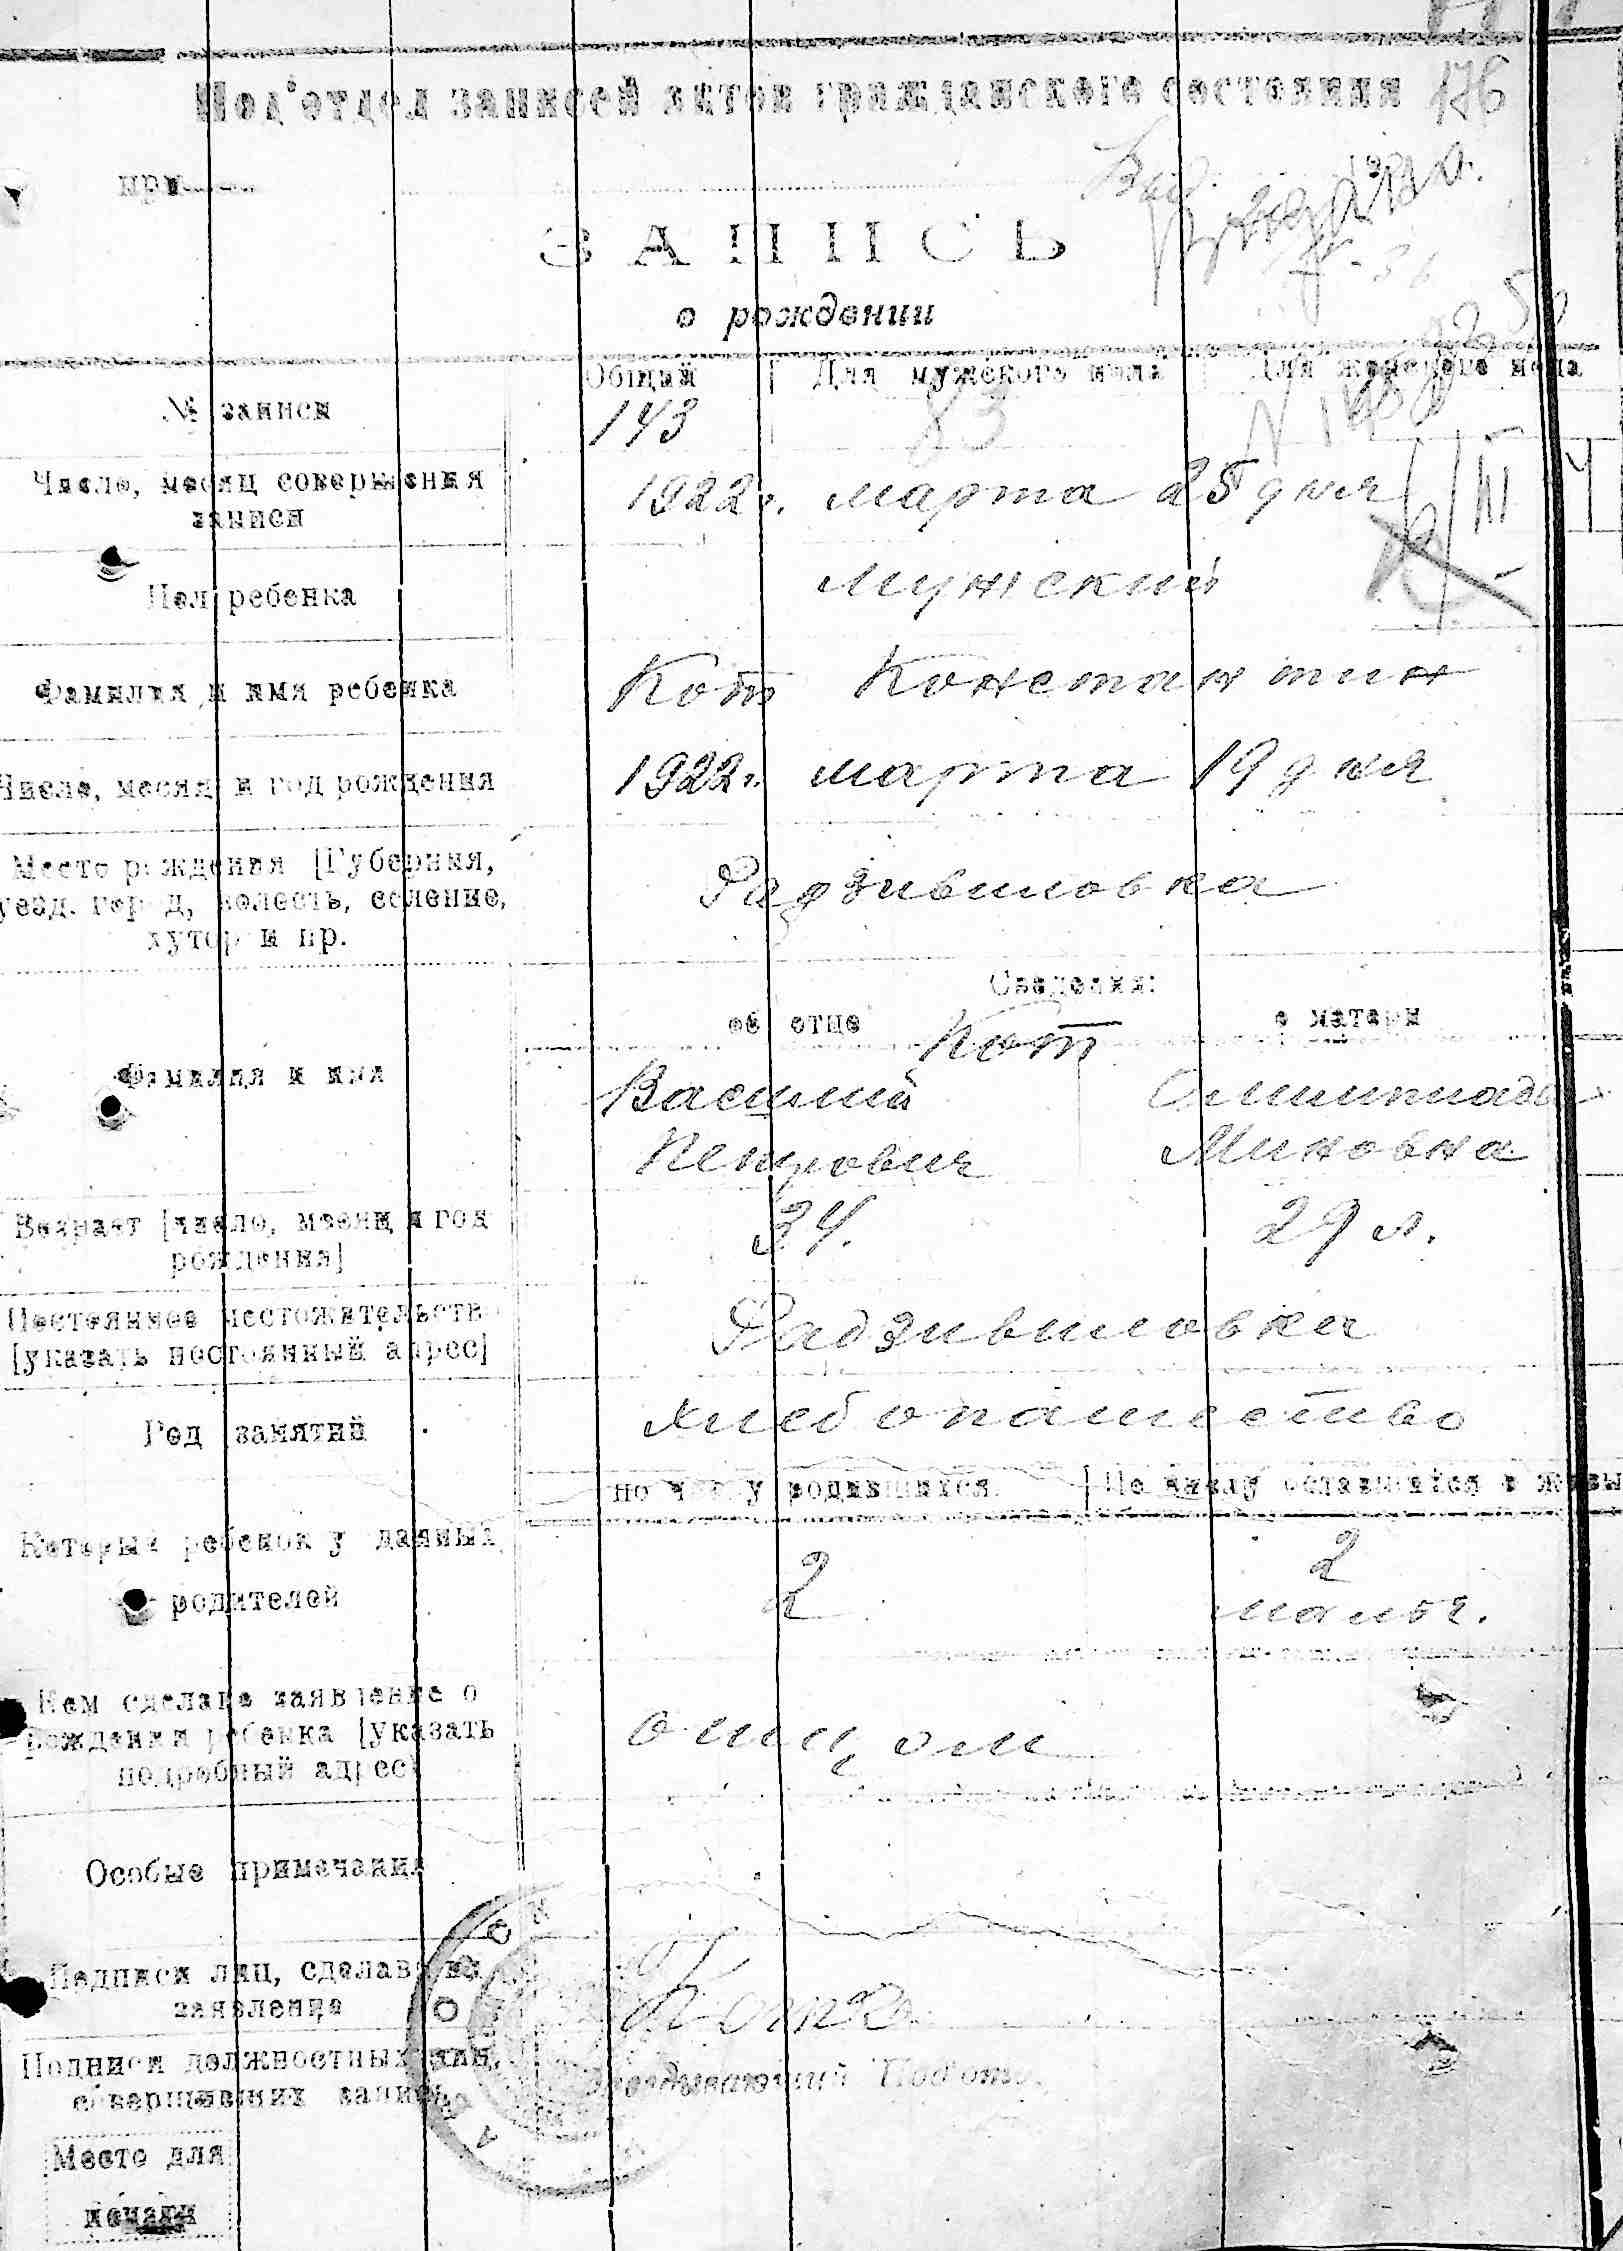 Под'отдел записей актов гражданского состояния 176
при
ЗАПИСЬ
о рождении
Общий Для мужского пола Для женского пола
№ записи 143 83
Число, месяц совершения записи 1922 г. марта 25 дня
Пол ребенка мужский
Фамилия и имя ребенка Кот Константин
Число, месяц и год рождения 1922 г. марта 19 дня
Место рождения [Губерния,
уезд. город, волость, селение,
хутор и пр. Радзивиловка
Сведения:
об отце о матери
Кот
Фамилия и имя Василий Олимпиада
Петрович Миновна
Возраст [число, месяц и год
рождения] 34. 29 л.
Постоянное местожительство
[указать постоянный адрес] Радзивиловка
Род занятий хлебопашество
по числу родившихся По числу оставшихся в живы
Который ребенок у данных
родителей 2 2
мальч.
Кем сделано заявление о
рождении ребенка [указать
подробный адрес] отцом
Особые примечания
Подписи лиц, сделавших
заявление
Подписи должностных лиц,
совершивших запись Заведывающий Под'отд.
Место для
печати